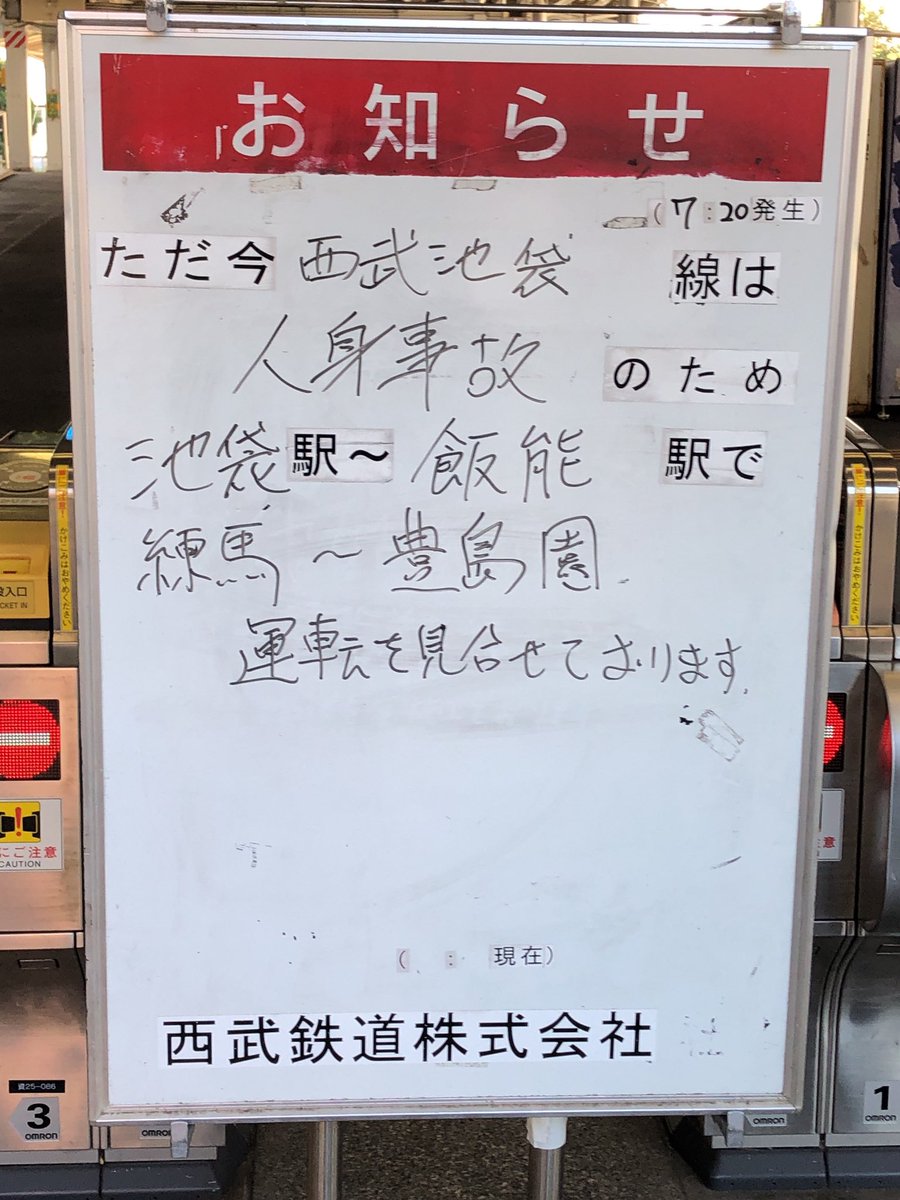 お知らせ
(7:20発生)
ただ今 西武池袋 線は
人身事故 のため
池袋 駅〜 飯能 駅で
練馬〜豊島園
運転を見合せております。
( : 現在)
西武鉄道株式会社
かけこみはおやめください
かけこみはおやめください
入口
CKET IN
にご注意
CAUTION
意
資25-086
3
OMRON
OMRON
OMRON
1
OMRON